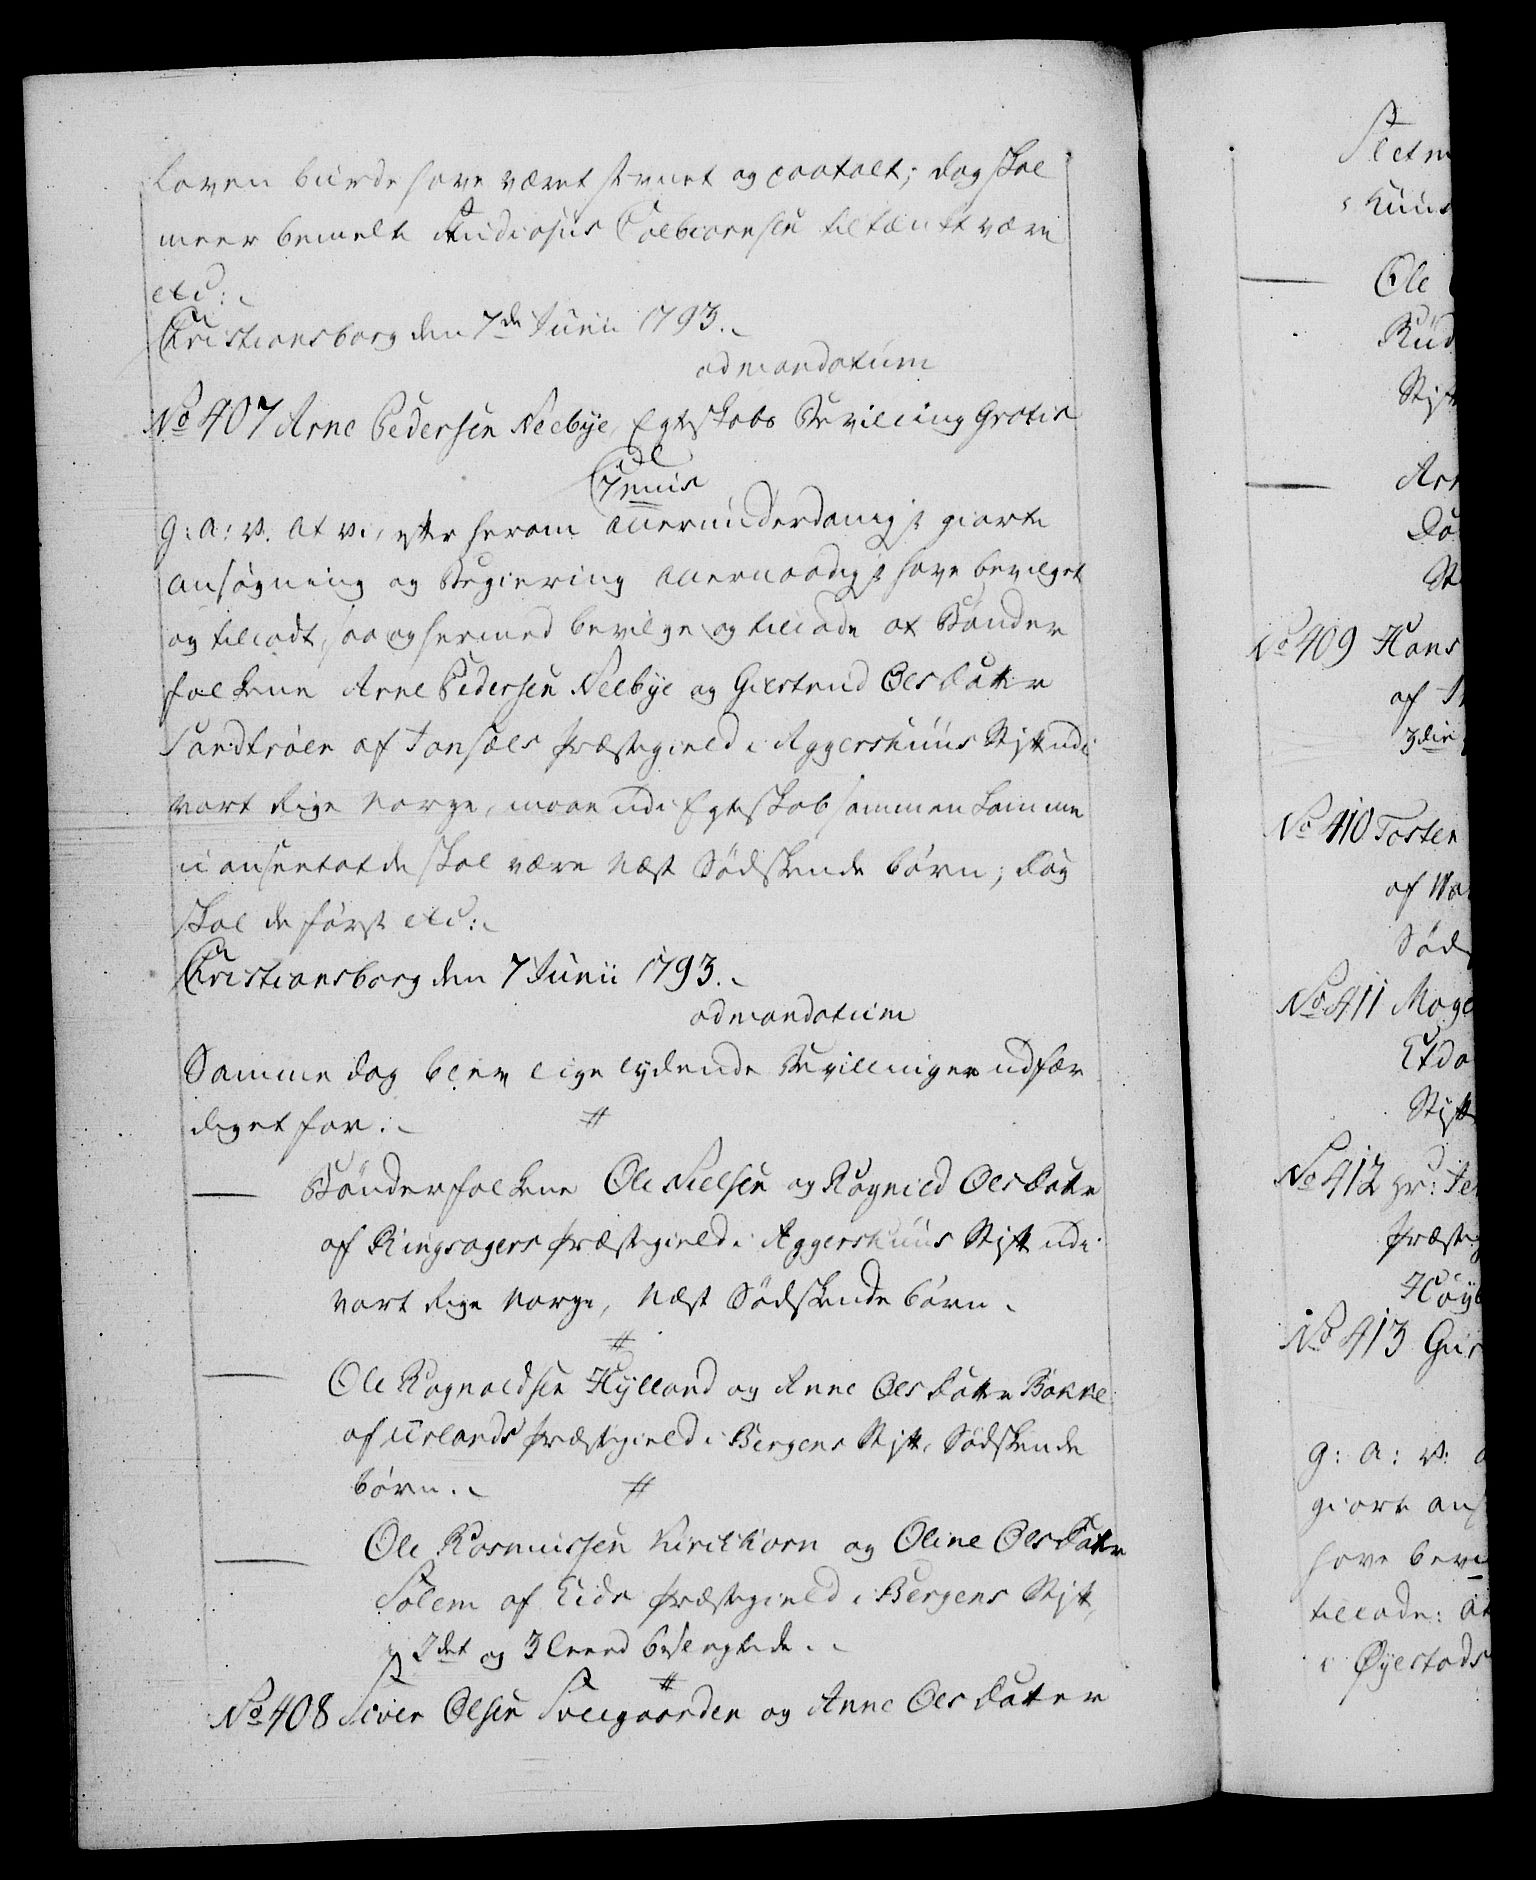 Loven burde have været stevnet og paatalt; dog skal
meer bemelte Studiosus Colbiørnsen tiltænkt være
etc:
Christiansborg den 7de Junii 1793.
ad mandatum
No 407 Arne Pedersen Neebye, Egteskabs Bevilling Gratis
C 7mus
G: A: V. at vi, efter herom allerunderdanigst giorte
ansøgning og Begiering allernaadigst have bevilget
og tilladt, saa og hermed bevilge og tillade at Bønder
folkene Arne Pedersen Neebye og Giertrud Olsdatter
Sandrøen af Gransøls Præstegield i Aggershuus Stift udi
vort Rige Norge, maae udi Egteskab sammenkomme
uanseet at de skal være Næst Sødskende børn; dog
skal de først etc:
Christiansborg den 7 Junii 1793.
ad mandatum
Samme dag blev lige lydende Bevillinger udfær
diget for.
#
Bønderfolkene Ole Nielsen og Ragnild Olsdatter
af Ringsagers Præstegield i Aggershuus Stift udi
vort Rige Norge, Næst Sødskende børn.
#
Ole Ragnaldsen Hylland og Anne Olsdatter Bakke
af Urlands Præstegield i Bergens Stift, Sødskende
børn.
#
Ole Rasmussen Kirkhorn og Oline Olsdatter
Solem af Eids Præstegield i Bergens Stift,
i 2det og 3 Leed beslegtede.
#
No 408 Siver Olsen Sveigaarden og Anne Olsdatter
Ole
Stift
No 409 Hans
af
3die
No 410 Tosten
af
Søds
No 411 Moge
Stift
No 412 Hr: Je
Præsteg
No 413
G: A: V:
giort ans
have bevi
tillade: at
i Øyestads